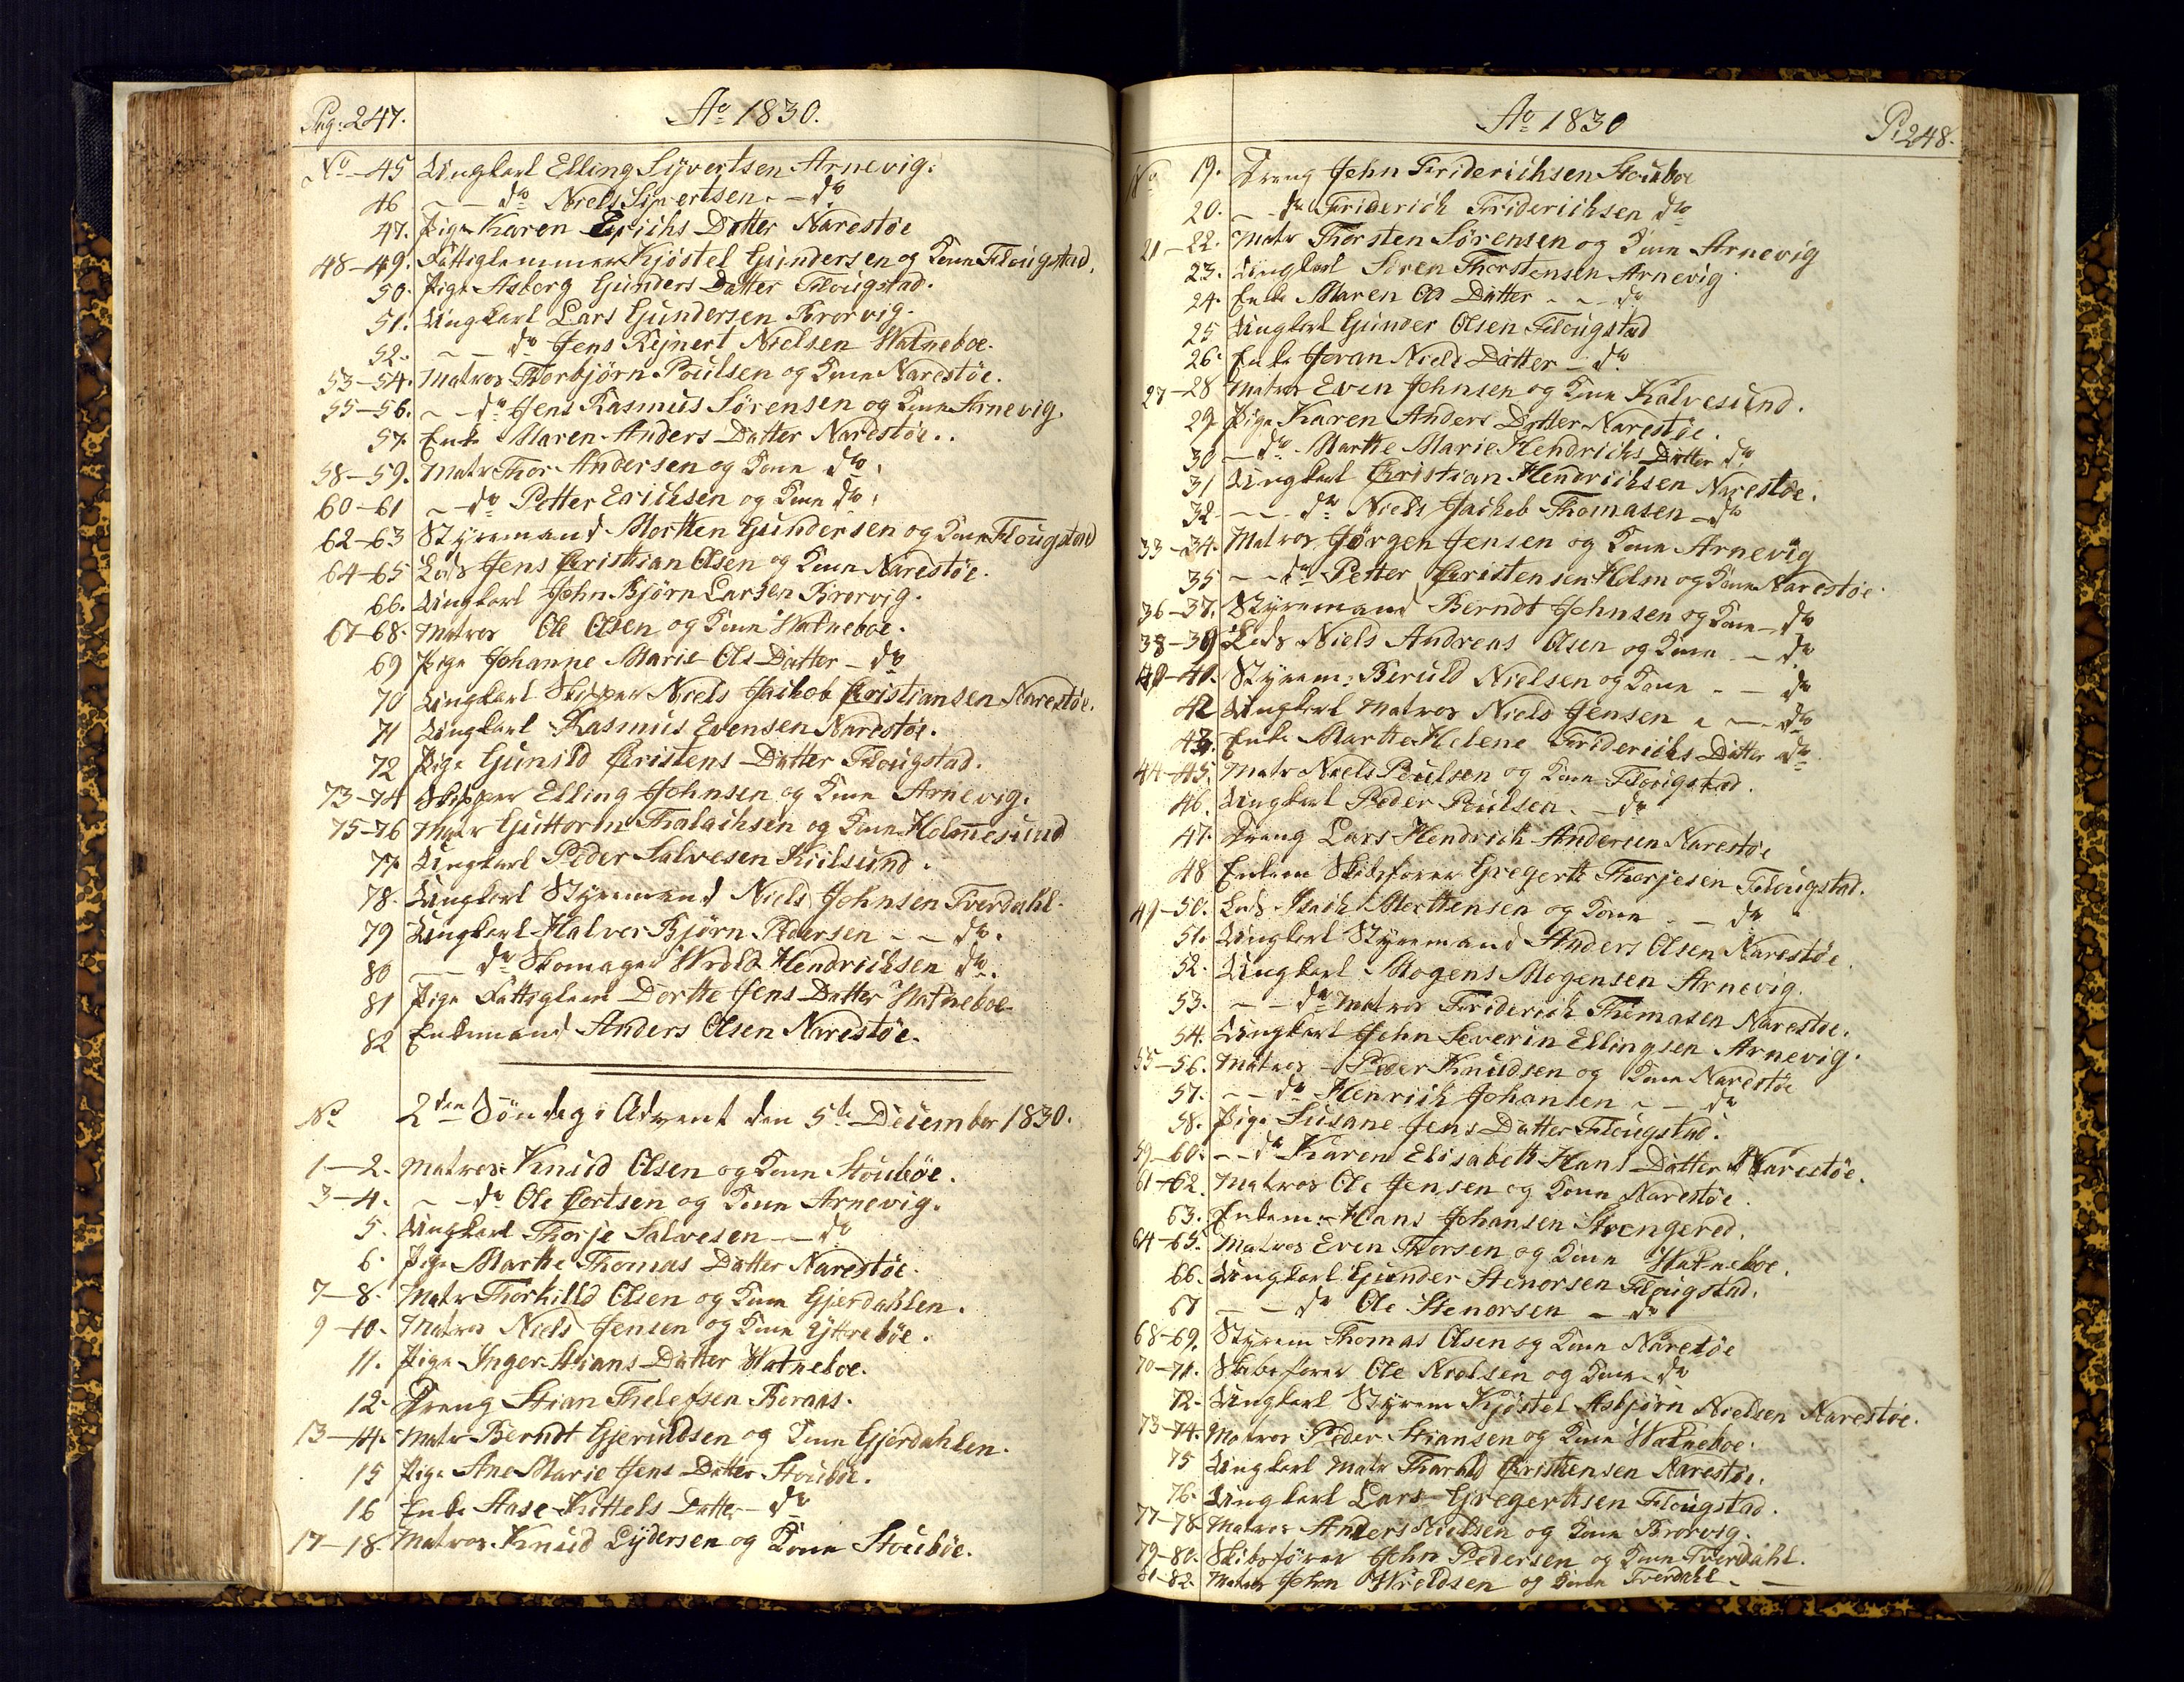 Pag: 247.
Ao 1830.
No 45 Ungkarl Elling Syvertsen Arnevig.
46 – – do Niels Sivertsen – do
47. Pige Karen Erichs Datter Narestøe
48–49. Fattiglemmer Kjøstel Gundersen og Kone Flougstad.
50. Pige Asberg Gunders Datter Flougstad.
51. Ungkarl Lars Gundersen Brorvig.
52. – – do Jens Rejnert Nielsen Watneboe.
53–54. Matros Thorbjørn Poulsen og Kone Narestøe.
55–56. – – do Jens Rasmus Sørensen og Kone Arnevig.
57. Enke Maren Anders Datter Narestøe.
58–59. Matr Thor Andersen og Kone do.
60–61 – do Petter Erichsen og Kone do.
62–63 Styrmand Morthen Gundersen og Kone Flougstad
64–65 Lods Jens Christian Olsen og Kone Narestøe.
66. Ungkarl John Bjørn Larsen Brorvig.
67–68. Matros Ole Olsen og Kone Watneboe.
69 Pige Johanne Marie Ols Datter – do
70 Ungkarl Skipper Niels Jacob Christiansen Narestøe.
71 Ungkarl Rasmus Evensen Narestøe.
72 Pige Gunild Christens Datter Flougstad.
73–74 Skipper Elling Johnsen og Kone Arnevig.
75–76 Matr Guttorm Thalachsen og Kone Holmesund
77. Ungkarl Peder Salvesen Kiilsund.
78. Ungkarl Styrmand Niels Johnsen Tverdahl.
79 Ungkarl Halvor Bjørn Pedersen – – do.
80 – – do Skomager Wrold Hendrichsen do.
81 Pige Fattiglem Dorthe Jens Datter Watneboe
82 Enkemand Anders Olsen Narestøe.
No 2den Søndag i Advent den 5te December 1830.
1–2. Matros Knud Olsen og Kone Stoubøe.
3–4. – – do Ole Cortsen og Kone Arnevig.
5. Ungkarl Thorje Salvesen – – do
6. Pige Marthe Thomas Datter Narestøe.
7–8. Matr Thorkilld Olsen og Kone Gjerdahlen.
9–10. Matros Niels Jensen og Kone Yttrebøe.
11. Pige Inger Stians Datter Watneboe.
12. Dreng Stian Thelefsen Boraas.
13–14. Matr Berndt Gjeruldsen og Kone Gjerdahlen.
15 Pige Ane Marie Jens Datter Stoubøe.
16 Enke Aase Kittels Datter – do
17–18. Matros Knud Lydersen og Kone Stoubøe.
Ao 1830
P. 248.
No 19. Dreng John Friderichsen Stouboe
20. – do Friderich Friderichsen do
21–22. Matr Thorsten Sørensen og Kone Arnevig
23. Ungkarl Søren Thorstensen Arnevig
24. Enke Maren Ols Datter – – do
25 Ungkarl Gunder Olsen Flougstad
26. Enke Joran Niels Datter – do.
27–28 Matros Even Johnsen og Kone Kalvesund.
29. Pige Karen Anders Datter Narestøe.
30 – do Marthe Marie Hendrichs Datter do.
31 Ungkarl Christian Hendrichsen Narestøe.
32 – – do Niels Jachob Thomasen – do
33–34. Matros Jørgen Jensen og Kone Arnevig
35 – – do Petter Christensen Holm og Kone Narestøe
36–37. Styrmand Berndt Johnsen og Kone – do
38–39 Lods Niels Andreas Olsen og Kone – do
40–41. Styrm: Beruld Nielsen og Kone – – do
42 Ungkarl Matros Niels Jensen – – do
43. Enke Marthe Helene Friderichs Datter do
44–45. Matr Niels Poulsen og Kone Flougstad.
46. Ungkarl Peder Poulsen – do
47. Dreng Lars Hendrich Andersen Narestøe
48 Enkem Skibsfører Gregert Thorjesen Flougstad.
49–50. Lods Isach Morttensen og Kone – – do
51. Ungkarl Styrmand Anders Olsen Narestøe.
52. Ungkarl Mogens Mogensen Arnevig.
53. – – do Matros Friderich Thomasen Narestøe.
54. Ungkarl John Severin Ellingsen Arnevig.
55–56. Matros Peder Knudsen og Kone Narestøe
57. – – do Henrich Johansen – – do
58. Pige Susane Jens Datter Flougstad.
59–60. – – do Karen Elisabeth Hans Datter Narestøe.
61–62. Matros Ole Jensen og Kone Narestøe.
63. Enkem: Hans Johansen Strengered.
64–65. Matros Even Thorsen og Kone Watneboe.
66. Ungkarl Gunder Stenorsen Flougstad.
67 – – do Ole Stenorsen – do
68–69. Styrm Thomas Olsen og Kone Narestøe
70–71. Skibsfører Ole Nielsen og Kone – do
72. Ungkarl Styrm Kjøstel Asbjørn Nielsen Narestøe.
73–74. Matros Peder Stiansen og Kone Watneboe.
75 Ungkarl Matr Tharald Christensen Narestøe.
76. Ungkarl Lars Gregertsen Flougstad.
77–78 Matros Anders Nielsen og Kone Brorvig.
79–80. Skibsfører John Pedersen og Kone Tverdahl.
81–82. Matros John Wroldsen og Kone Tverdahl – –